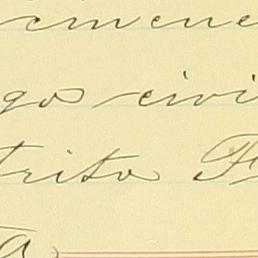 emene
go civi
trito F
a